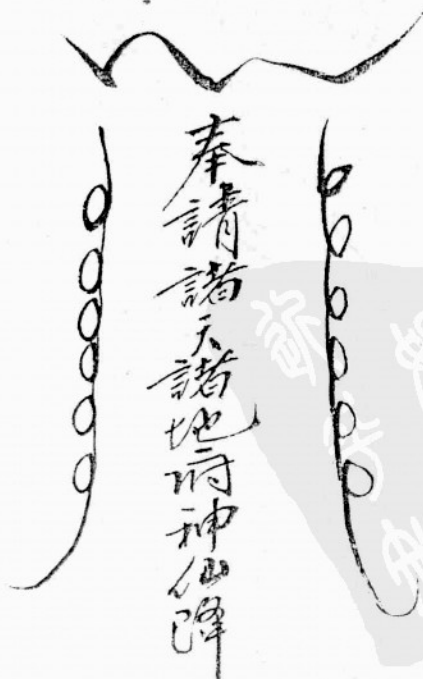 奉請諸天諸地府神仙降